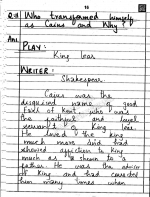 15
Q.11 Who transformed himself
as Caius and Why?
Ans.
PLAY:
King lear
WRITER:
Shakespear
Caius was the
disguised name of good
Earl of Kent who was
the faithful and loyal
of King lear
He loved the king
much more And had
showed affection to King
much as is shown to a
father He was the advisor
of King and had
him many times when